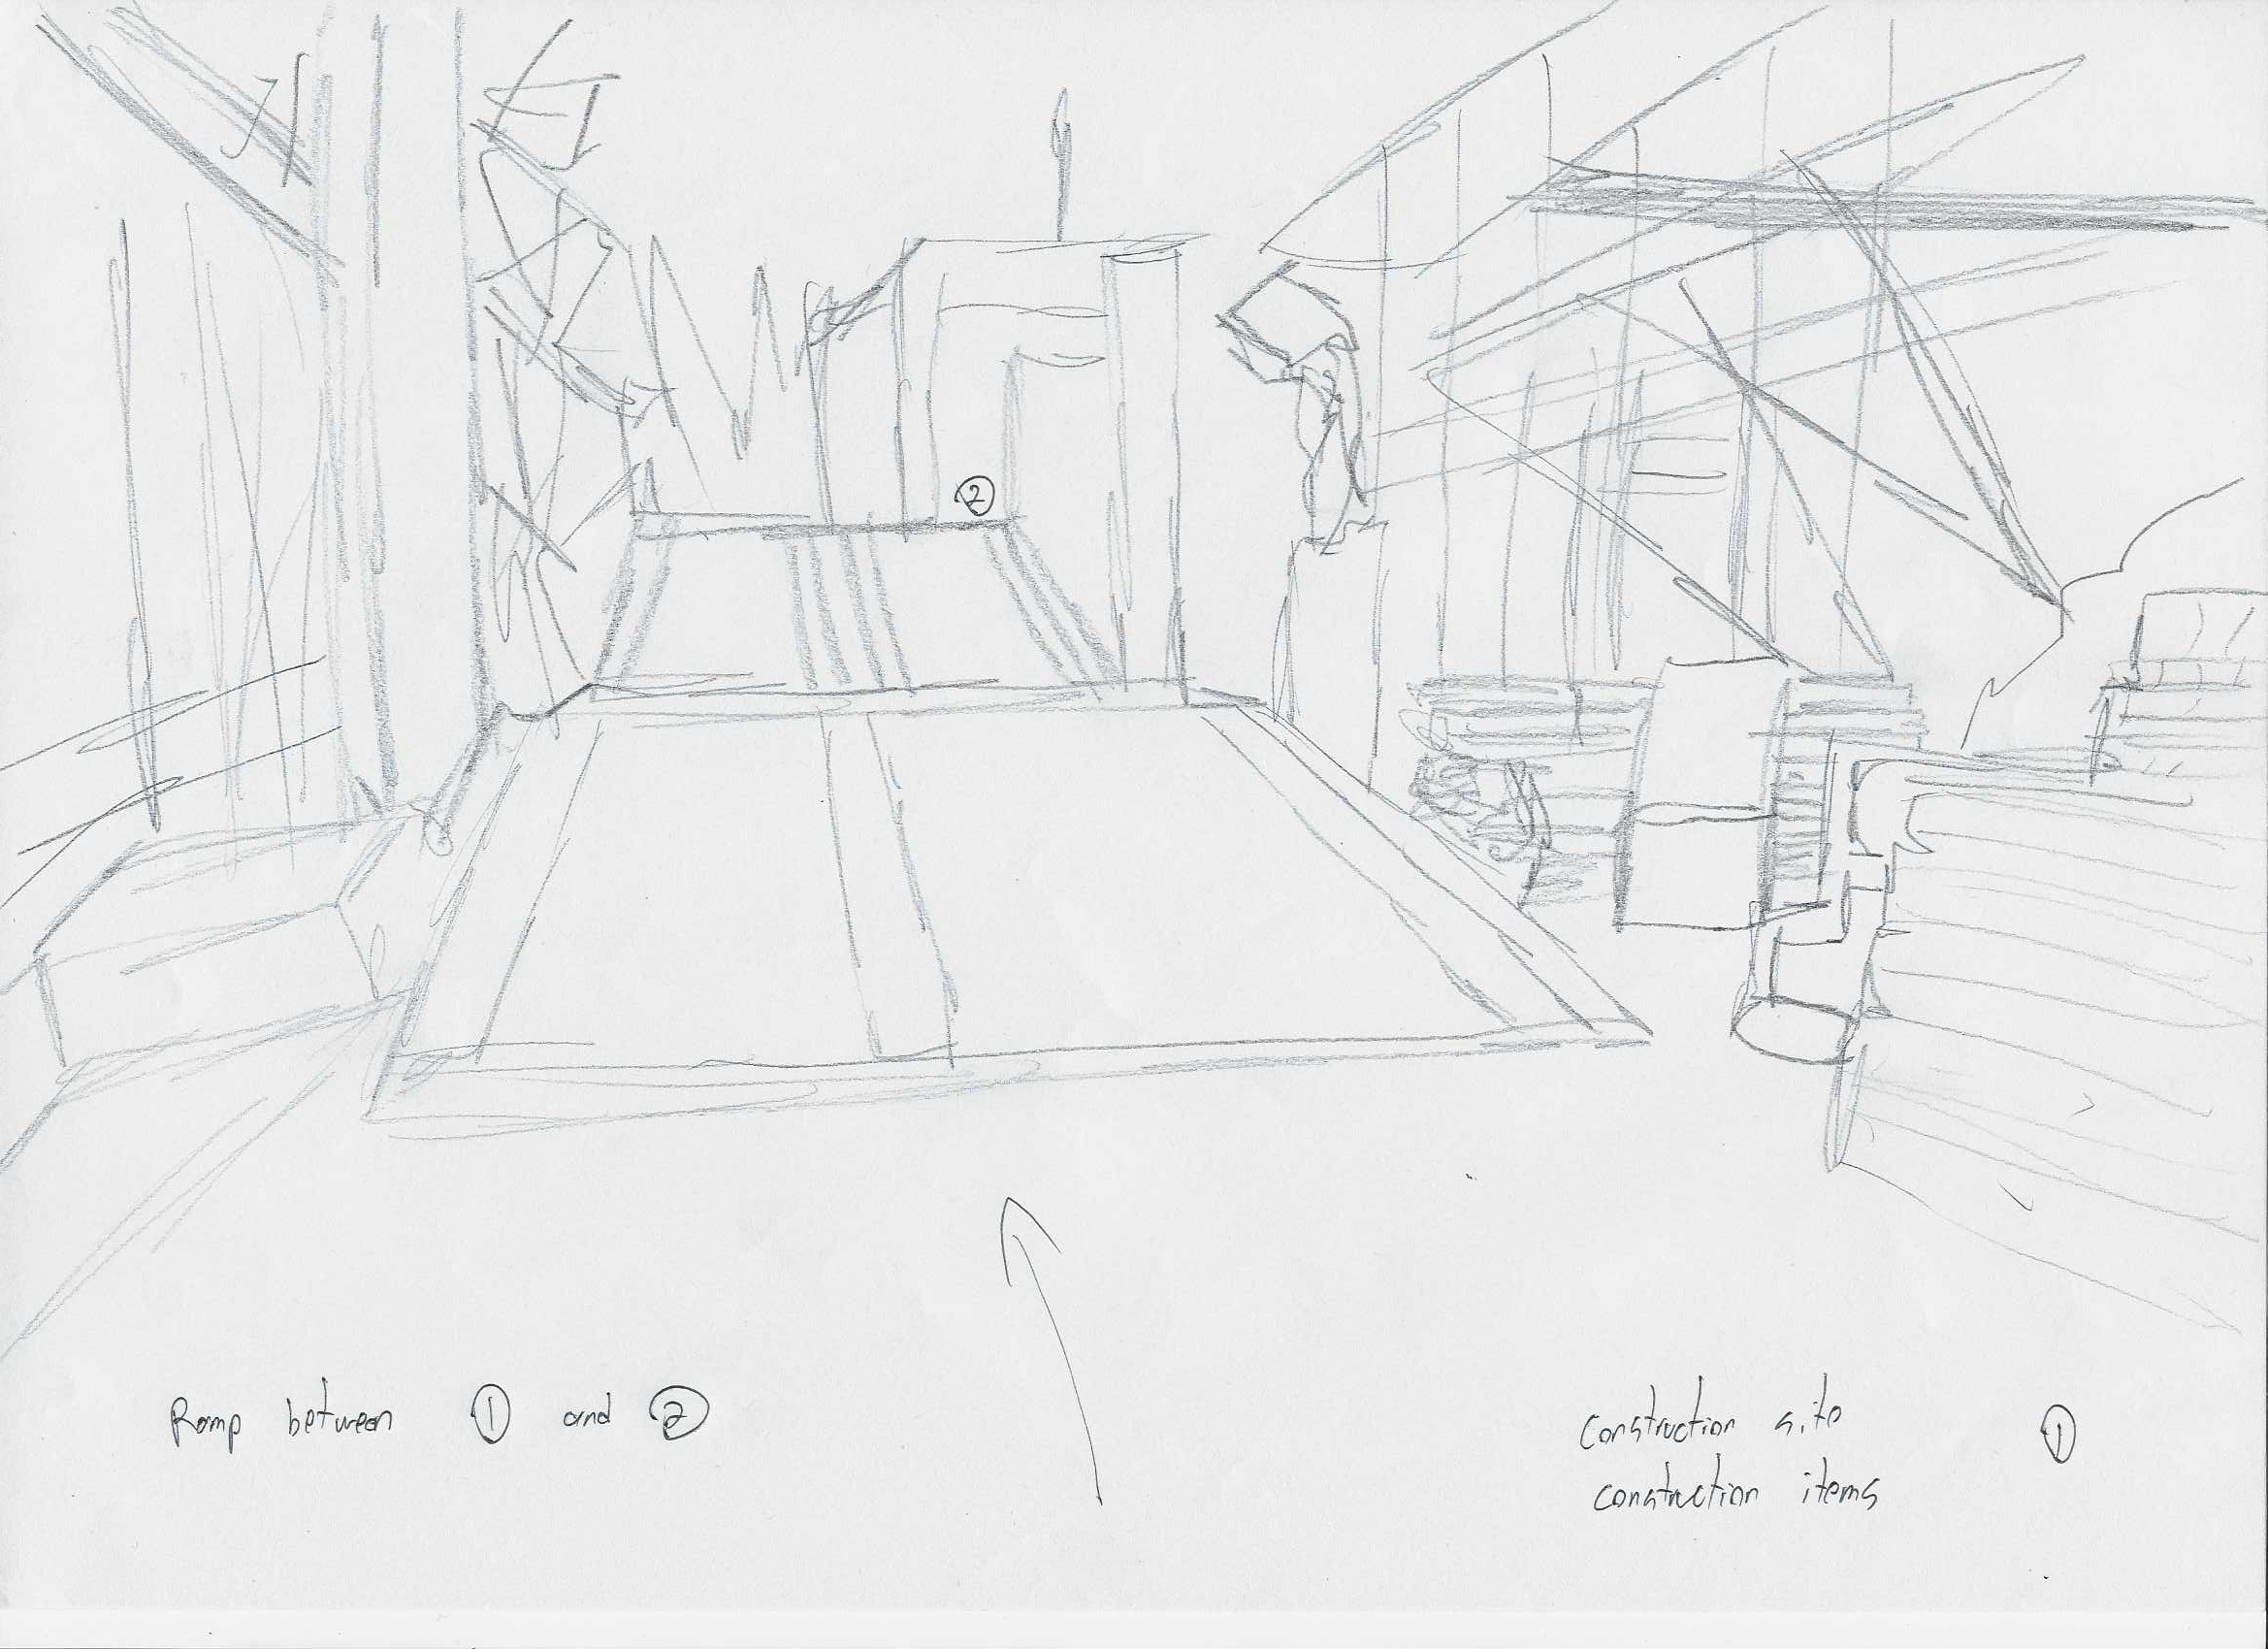 ②
Ramp between ① and ②
construction site ①
construction items